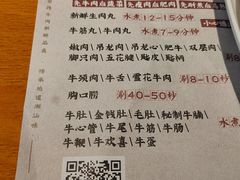 先牛肉后蔬菜 先瘦肉后肥肉 先耐煮后
新鲜生肉丸 水煮12-15分钟
牛筋丸｜牛肉丸 水煮7-9分钟
嫩肉｜吊龙｜吊龙心｜肥牛｜双层肉
脚只肉｜五花腱｜匙皮｜匙柄
牛颈肉｜牛舌｜雪花牛肉 涮8-10秒
胸口捞 涮40-50秒
牛肚｜金钱肚｜毛肚｜秘制牛腩
牛心管｜牛尾｜牛筋｜牛肠｜
牛鞭｜牛欢喜｜牛蛋
涮5